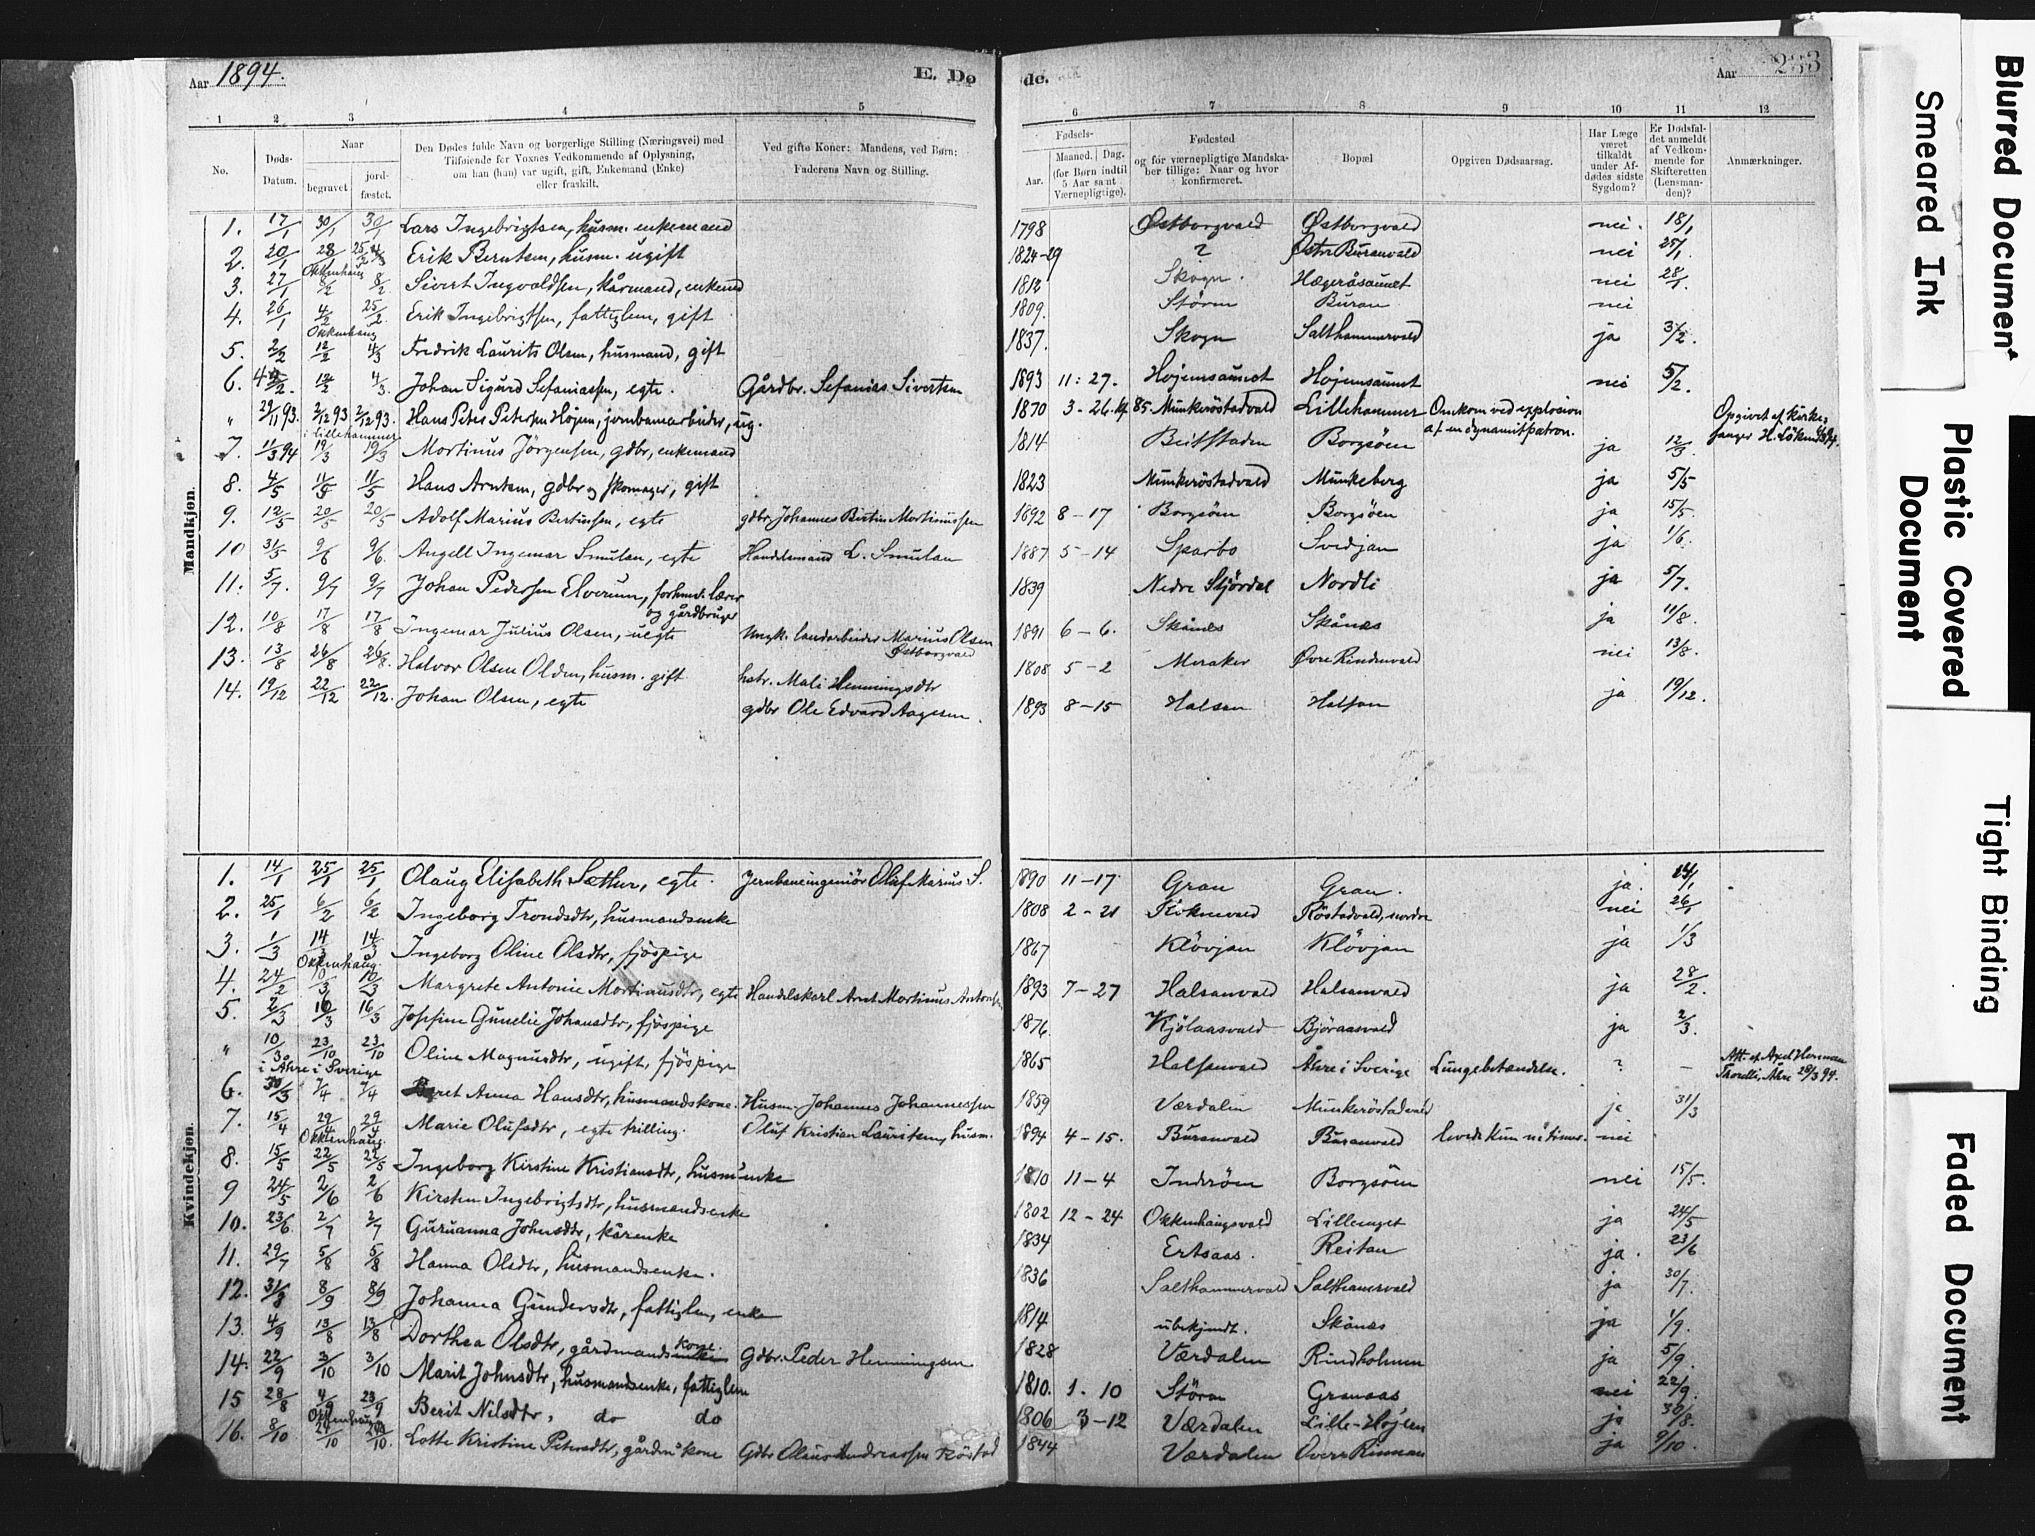 Aar 1894.
E. Dø
de.
Aar 233
1 2 3 4 5 6 7 8 9 10 11 12
No.
Døds-Datum.
Naar
begravet
jord-fæstet.
Den Dødes fulde Navn og borgerlige Stilling (Næringsvei) med
Tilføiende for Voxnes Vedkommende af Oplysning,
om han (hun) var ugift, gift, Enkemand (Enke)
eller fraskilt.
Ved gifte Koner: Mandens, ved Børn:
Faderens Navn og Stilling.
Fødsels-
Aar.
Maaned. | Dag.
(for Børn indtil
5 Aar samt
Værnepligtige).
Fødested
og for værnepligtige Mandska-
ber tillige: Naar og hvor
konfirmeret.
Bopæl.
Opgiven Dødsaarsag.
Har Læge
været
tilkaldt
under Af-
dødes sidste
Sygdom?
Er Dødsfal-
det anmeldt
af Vedkom-
mende for
Skifteretten
(Lensman-
den)?
Anmærkninger.
Mandkjøn.
1. 17/1 30/1 30/1 Lars Ingebrigtsen, husm. enkemand 1798 Østborgvald Østborgvald nei. 18/1
2. 20/1 28/1 Erik Berntsen, husm. ugift 1824-29 ? Østre Buranvald nei 25/1.
Okkenhaug
3. 27/1 8/2 8/2. Sivert Ingvaldsen, kårmand, enkemd 1812 Skogn. Hægeråsaunet nei 28/1.
4. 26/1 4/2 25/2. Erik Ingebrigtsen, fattiglem, gift 1809. Stören Buran nei
Okkenhaug
5. 2/2 12/2 4/3 Fredrik Laurits Olsen, husmand, gift 1837. Skogn Salthammervald ja 3/2.
6. 12/2 4/3. Johan Sigurd Sefaniassen, egte. Gårdbr. Sefanias Sivertsen 1893 11: 27. Hojemsaunet Hojemsaunet nei 5/2.
" 29/11 93. 2/12 93 2/12 93. Hans Peter Petersen Højem, jernbanarbeider, ug. 1870 3-26. Munkeröstadvald Lillehammer Omkom ved explosion af en dynamitpatron. Opgivet af kirke-
i Lillehammer
7. 11/3 94 19/3 19/3 Mortinus Jörgensen, gdbr, enkemand 1814 Beitstaden Borgsöen ja 12/3.
8. 4/5 11/5 11/5 Hans Arntsen, gdbr og skomager, gift 1823 Munkeröstadvald Munkeberg ja 5/5
9. 12/5 20/5 20/5 Adolf Marius Bertinsen, egte gdbr Johannes Bertin Mortinussen 1892 8-17 Borgsöen Borgsöen ja 15/5.
10 31/5 9/6 9/6. Angell Ingemar Smulan, egte Handelsmand L. Smulan 1887 5-14 Sparbo Svedjan ja 1/6.
11. 5/7. 9/7 9/7 Johan Pedersen Elverum, forhenv. lærer og gårdbruger 1839 Nedre Stjördal Nordli ja 5/7.
12. 10/8 17/8 17/8 Ingemar Julius Olsen, uegte Ungk. landarbeider Marius Olsen Østborgvald 1891 6-6. Skånes Skånes ja 11/8.
13. 13/8 26/8 26/8. Halvor Olsen Olden, husm. gift hstr. Mali Henningsdtr 1808 5-2 Meraker Øvre Rindenvald nei 13/8.
14. 19/12 22/12 22/12. Johan Olsen, egte gdbr Ole Edvard Aagesen. 1893 8-15 Halsan Halsan ja 19/12.
Kvindekjøn.
1. 14/1 25/1 25/1 Olaug Elisabeth Sæther, egte. Jernbaneingeniör Oluf Marius S. 1890 11-17 Gran Gran. ja.
2. 25/1 6/2 6/2 Ingeborg Trondsdtr, husmandsenke 1808 2-21 Röstadvald, nordre nei 26/1
3. 1/3 14/3 14/3 Ingeborg Oline Olsdtr, fjöspige 1867 Klövjan Klövjan ja 1/3
Okkenhaug.
4. 24/2 10/3 10/3 Margrete Antonie Mortinusdtr, egte Handelskarl Arnt Mortinus Antonsen 1893 7-27 Halsanvald Halsanvald ja 28/2.
5. 2/3 16/3 16/3 Josefine Gunelie Johansdtr, fjöspige 1876. Kjölaasvald Björaasvald ja 2/3.
" 10/3 23/10 23/10 Oline Magnusdtr, ugift, fjöspige 1865 Halsanvald Åhre i Sverige Lungebetændelse. ? - Att. af Axel Herman Thorelli, Åhre 28/3 94.
i Åhre i Sverige
6. 30/3 7/4 7/4 Beret Anna Hansdtr, husmandskone. Husm. Johannes Johannessen 1859 Værdalen Munkeröstadvald ja 31/3
7. 15/4 29/4 29/4 Marie Olufsdtr, egte trilling. Oluf Kristian Lauritsen, husm. 1894 4-15. Buranvald Buranvald levede kun timer. nei
Okkenhaug.
8. 15/5 22/5 22/5 Ingeborg Kirstine Kristiansdtr, husm.enke 1810 11-4 Inderöen Borgsöen nei 15/5.
9 24/5 2/6 2/6 Kirsten Ingebrigtsdtr, husmandsenke 1802 12-24 Okkenhaugsvald ja 24/5
10. 23/6 2/7 2/7 Guruanna Johnsdtr, kårenke 1834 Ertsaas. Reitan ja. 23/6
11. 29/7 5/8 5/8 Hanna Olsdtr, husmandsenke. 1836 Salthammervald Salthamervald ja 30/7.
12. 31/8 8/9 8/9 Johanna Gundersdtr, fattiglem, enke 1814 ubekjendt. Skånes ja 1/9.
13. 4/9 13/8 13/8 Dorthea Olsdtr, gårdmandskone. Gdbr. Peder Henningsen 1828 Værdalen Rindholmen ja 5/9.
14. 22/9 3/10 3/10 Marit Johnsdtr, husmandsenke, fattiglem 1810. 1. 10 Stören Granaas nei 22/9.
15 28/8 4/9 23/9 Berit Nilsdtr, do do 1806 3-12 Værdalen Lille-Højem ja 30/8.
Okkenhaug
16. 8/10 Lotte Kristine Petersdtr, gårdm.kone Gdbr Olaus Andreassen Röstad 1844 Værdalen Overe Rinnan ja 9/10.
Blurred Document
Smeared Ink
Plastic Covered
Document
Tight Binding
Faded Document